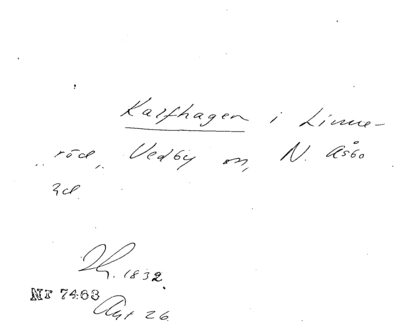 Kalfhagen i Linne-
röd, Vedby sn, N. Åsbo
hd.
1832.
Nr 7463
Akt 26